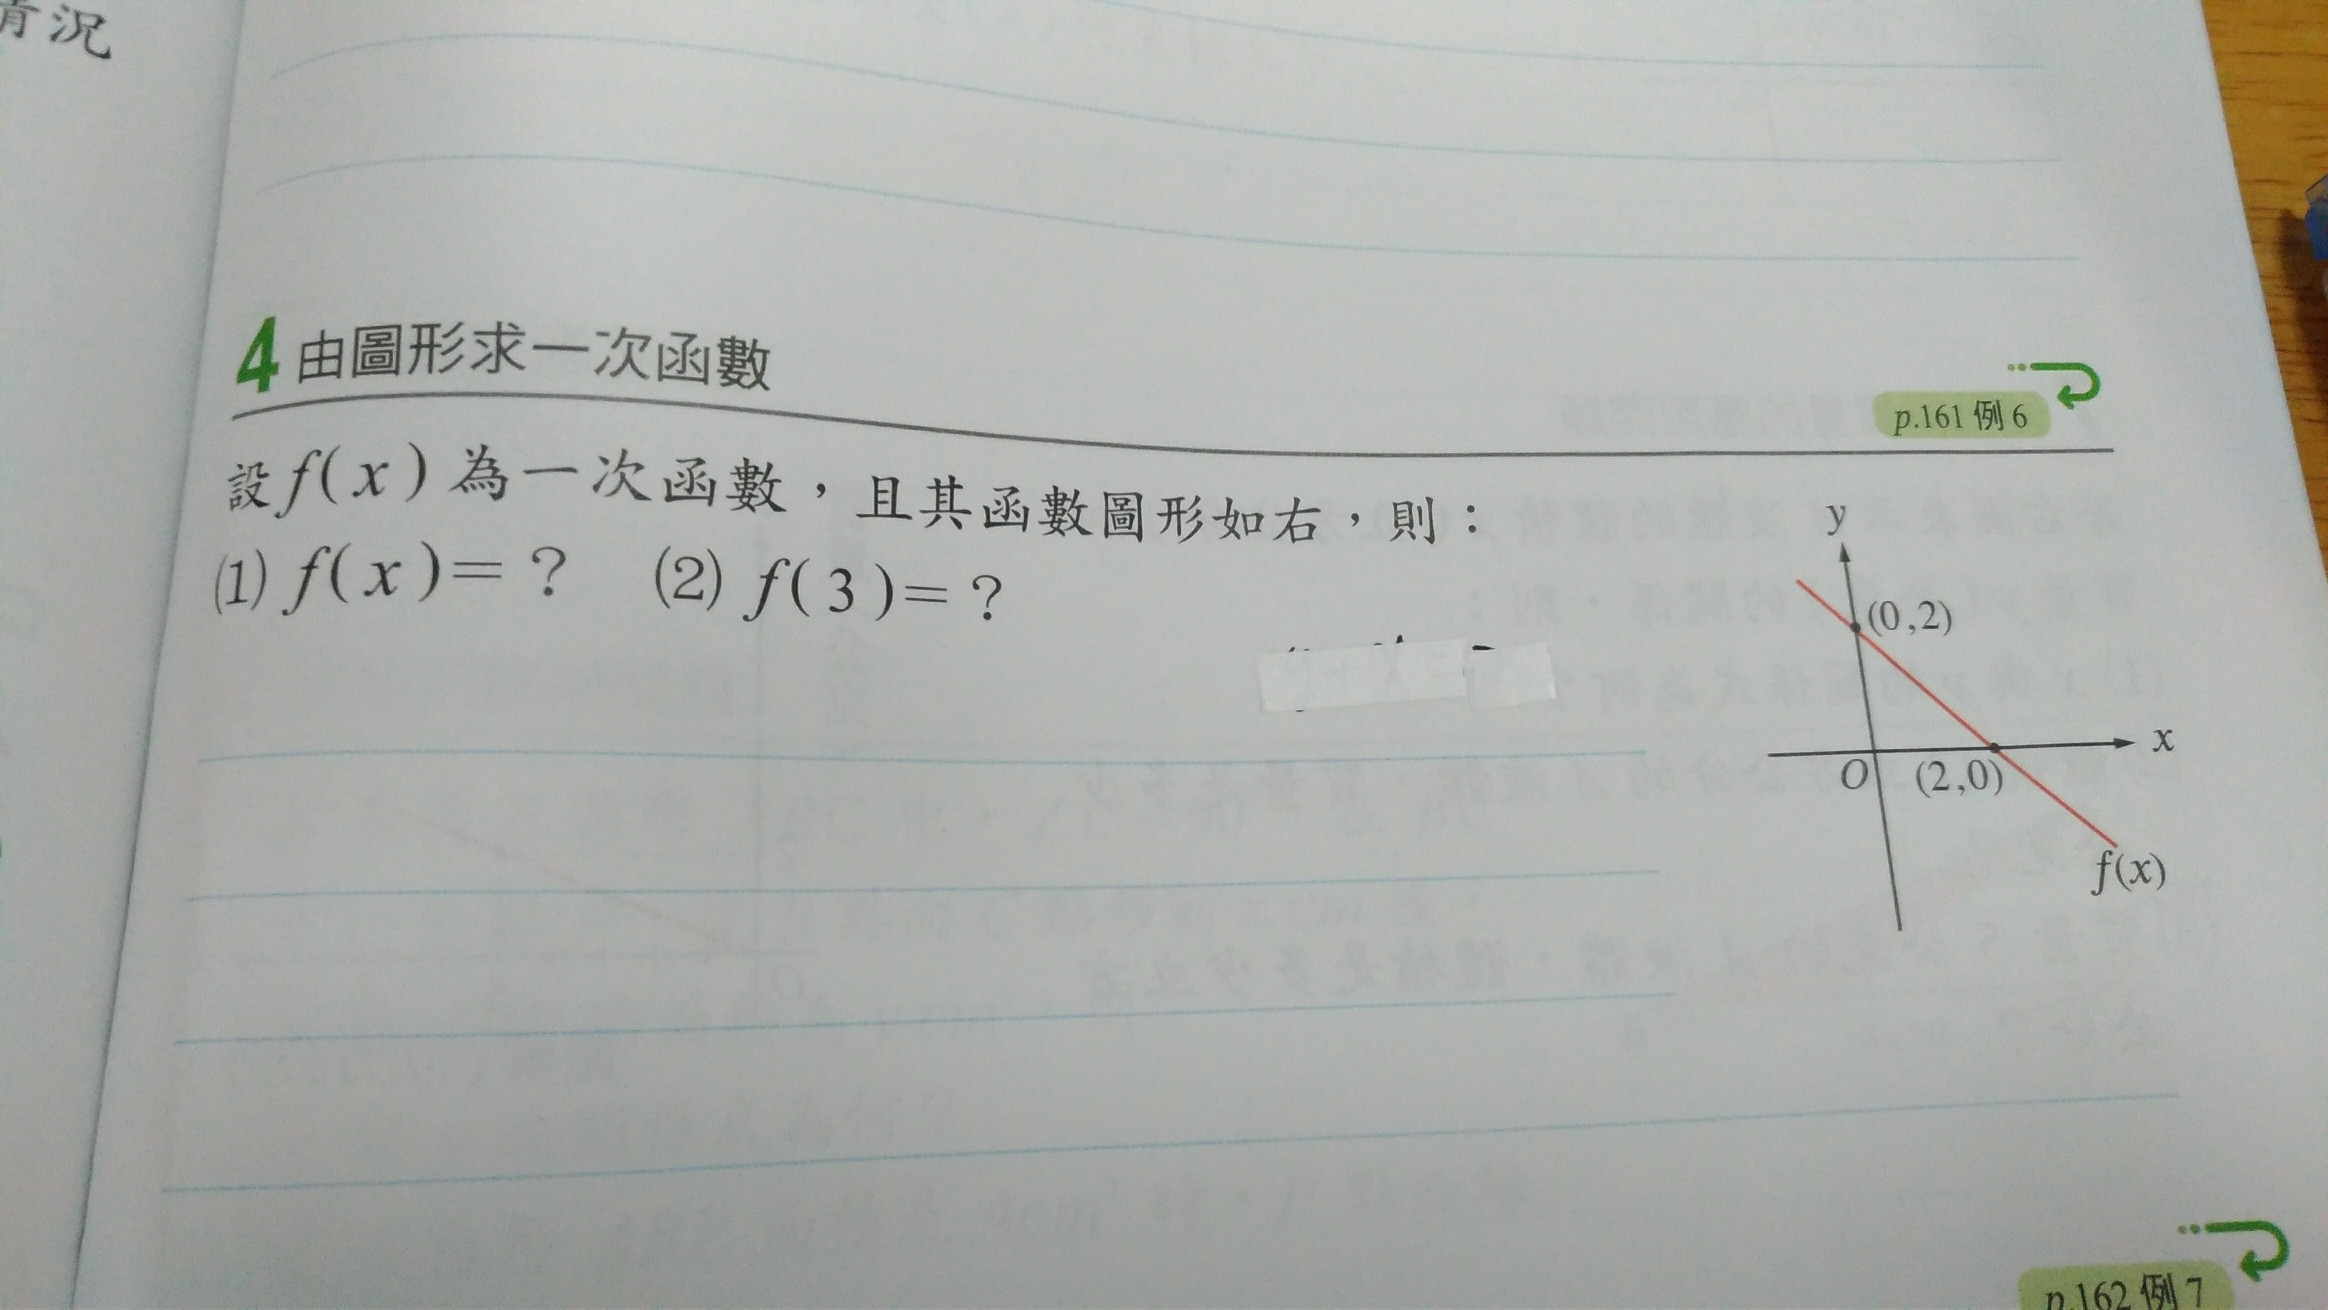 情況
4 由圖形求一次函數
p.161 例 6
設 f(x) 為一次函數，且其函數圖形如右，則：
(1) f(x)=？ (2) f(3)=？
y
(0,2)
x
O (2,0)
f(x)
p.162 例 7